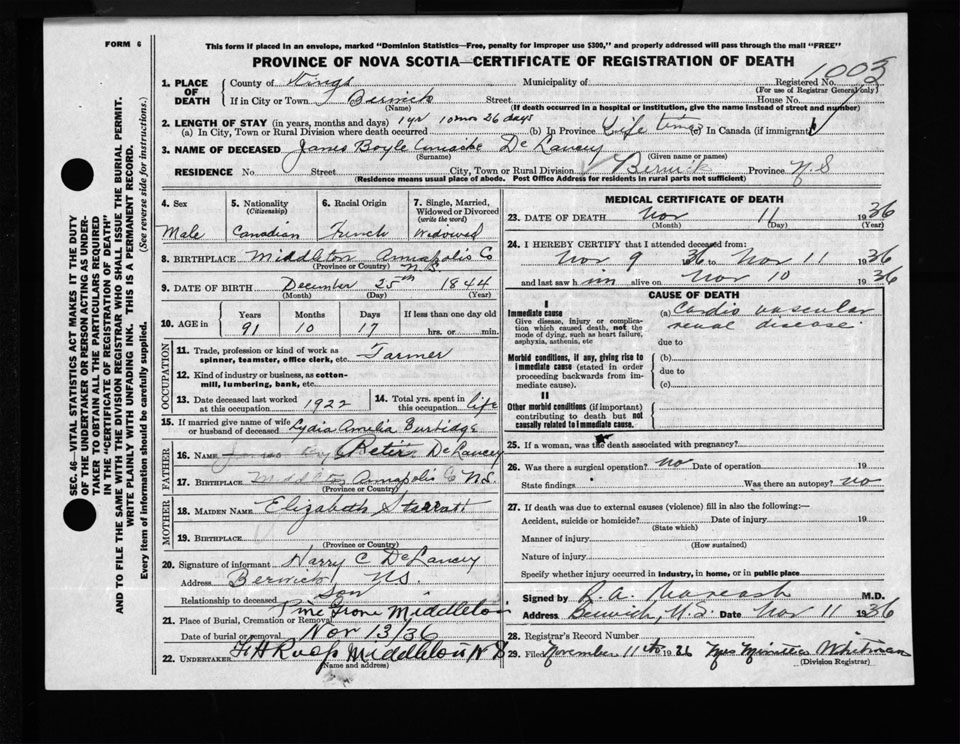 FORM 6
This form if placed in an envelope, marked "Dominion Statistics—Free, penalty for improper use $300," and properly addressed will pass through the mail "FREE"
PROVINCE OF NOVA SCOTIA—CERTIFICATE OF REGISTRATION OF DEATH
1. PLACE OF DEATH
County of Kings Municipality of Registered No. 1003
(For use of Registrar General only)
If in City or Town Berwick Street House No.
(Name) (If death occurred in a hospital or institution, give the name instead of street and number)
2. LENGTH OF STAY (in years, months and days) 1 yr 10 mos 26 days
(a) In City, Town or Rural Division where death occurred (b) In Province Life time (c) In Canada (if immigrant)
3. NAME OF DECEASED James Boyle De Lancey
(Surname) (Given name or names)
RESIDENCE No. Street City, Town or Rural Division Berwick Province N.S
(Residence means usual place of abode. Post Office Address for residents in rural parts not sufficient)
SEC. 46—VITAL STATISTICS ACT MAKES IT THE DUTY
OF THE UNDERTAKER OR PERSON ACTING AS UNDER-
TAKER TO OBTAIN ALL THE PARTICULARS REQUIRED
IN THE "CERTIFICATE OF REGISTRATION OF DEATH"
AND TO FILE THE SAME WITH THE DIVISION REGISTRAR WHO SHALL ISSUE THE BURIAL PERMIT.
WRITE PLAINLY WITH UNFADING INK. THIS IS A PERMANENT RECORD.
Every item of information should be carefully supplied. (See reverse side for instructions.)
4. Sex
Male
5. Nationality
(Citizenship)
Canadian
6. Racial Origin
French
7. Single, Married,
Widowed or Divorced
(write the word)
Widowed
8. BIRTHPLACE Middleton Annapolis Co
(Province or Country) N.S.
9. DATE OF BIRTH December 25th 1844
(Month) (Day) (Year)
10. AGE in
Years Months Days If less than one day old
91 10 17 hrs. or min.
OCCUPATION
11. Trade, profession or kind of work as
spinner, teamster, office clerk, etc. Farmer
12. Kind of industry or business, as cotton-
mill, lumbering, bank, etc.
13. Date deceased last worked
at this occupation 1922
14. Total yrs. spent in
this occupation life
15. If married give name of wife
or husband of deceased Lydia Amelia Burbidge
FATHER
16. NAME Peter De Lancey
17. BIRTHPLACE Middleton Annapolis Co N.S.
(Province or Country)
MOTHER
18. MAIDEN NAME Elizabeth Starratt
19. BIRTHPLACE
(Province or Country)
20. Signature of informant Harry C DeLancey
Address Berwick, NS.
Relationship to deceased Son
21. Place of Burial, Cremation or Removal Pine Grove Middleton
Date of burial or removal Nov 13/36
22. UNDERTAKER Middleton N S
(Name and address)
MEDICAL CERTIFICATE OF DEATH
23. DATE OF DEATH Nov 11 1936
(Month) (Day) (Year)
24. I HEREBY CERTIFY that I attended deceased from:
Nov 9 36 to Nov 11 1936
and last saw him alive on Nov 10 1936
CAUSE OF DEATH
I
Immediate cause
Give disease, injury or complica-
tion which caused death, not the
mode of dying, such as heart failure,
asphyxia, asthenia, etc
(a) Cardio vascular
renal disease
due to
Morbid conditions, if any, giving rise to
immediate cause (stated in order
proceeding backwards from im-
mediate cause).
(b)
due to
(c)
II
Other morbid conditions (if important)
contributing to death but not
causally related to immediate cause.
25. If a woman, was the death associated with pregnancy?
26. Was there a surgical operation? no Date of operation 19
State findings Was there an autopsy? no
27. If death was due to external causes (violence) fill in also the following:—
Accident, suicide or homicide? Date of injury 19
(State which)
Manner of injury
(How sustained)
Nature of injury
Specify whether injury occurred in industry, in home, or in public place
Signed by M.D.
Address Berwick, N.S. Date Nov 11 1936
28. Registrar's Record Number
29. Filed November 11th 1936 Mrs Whitman
(Division Registrar)